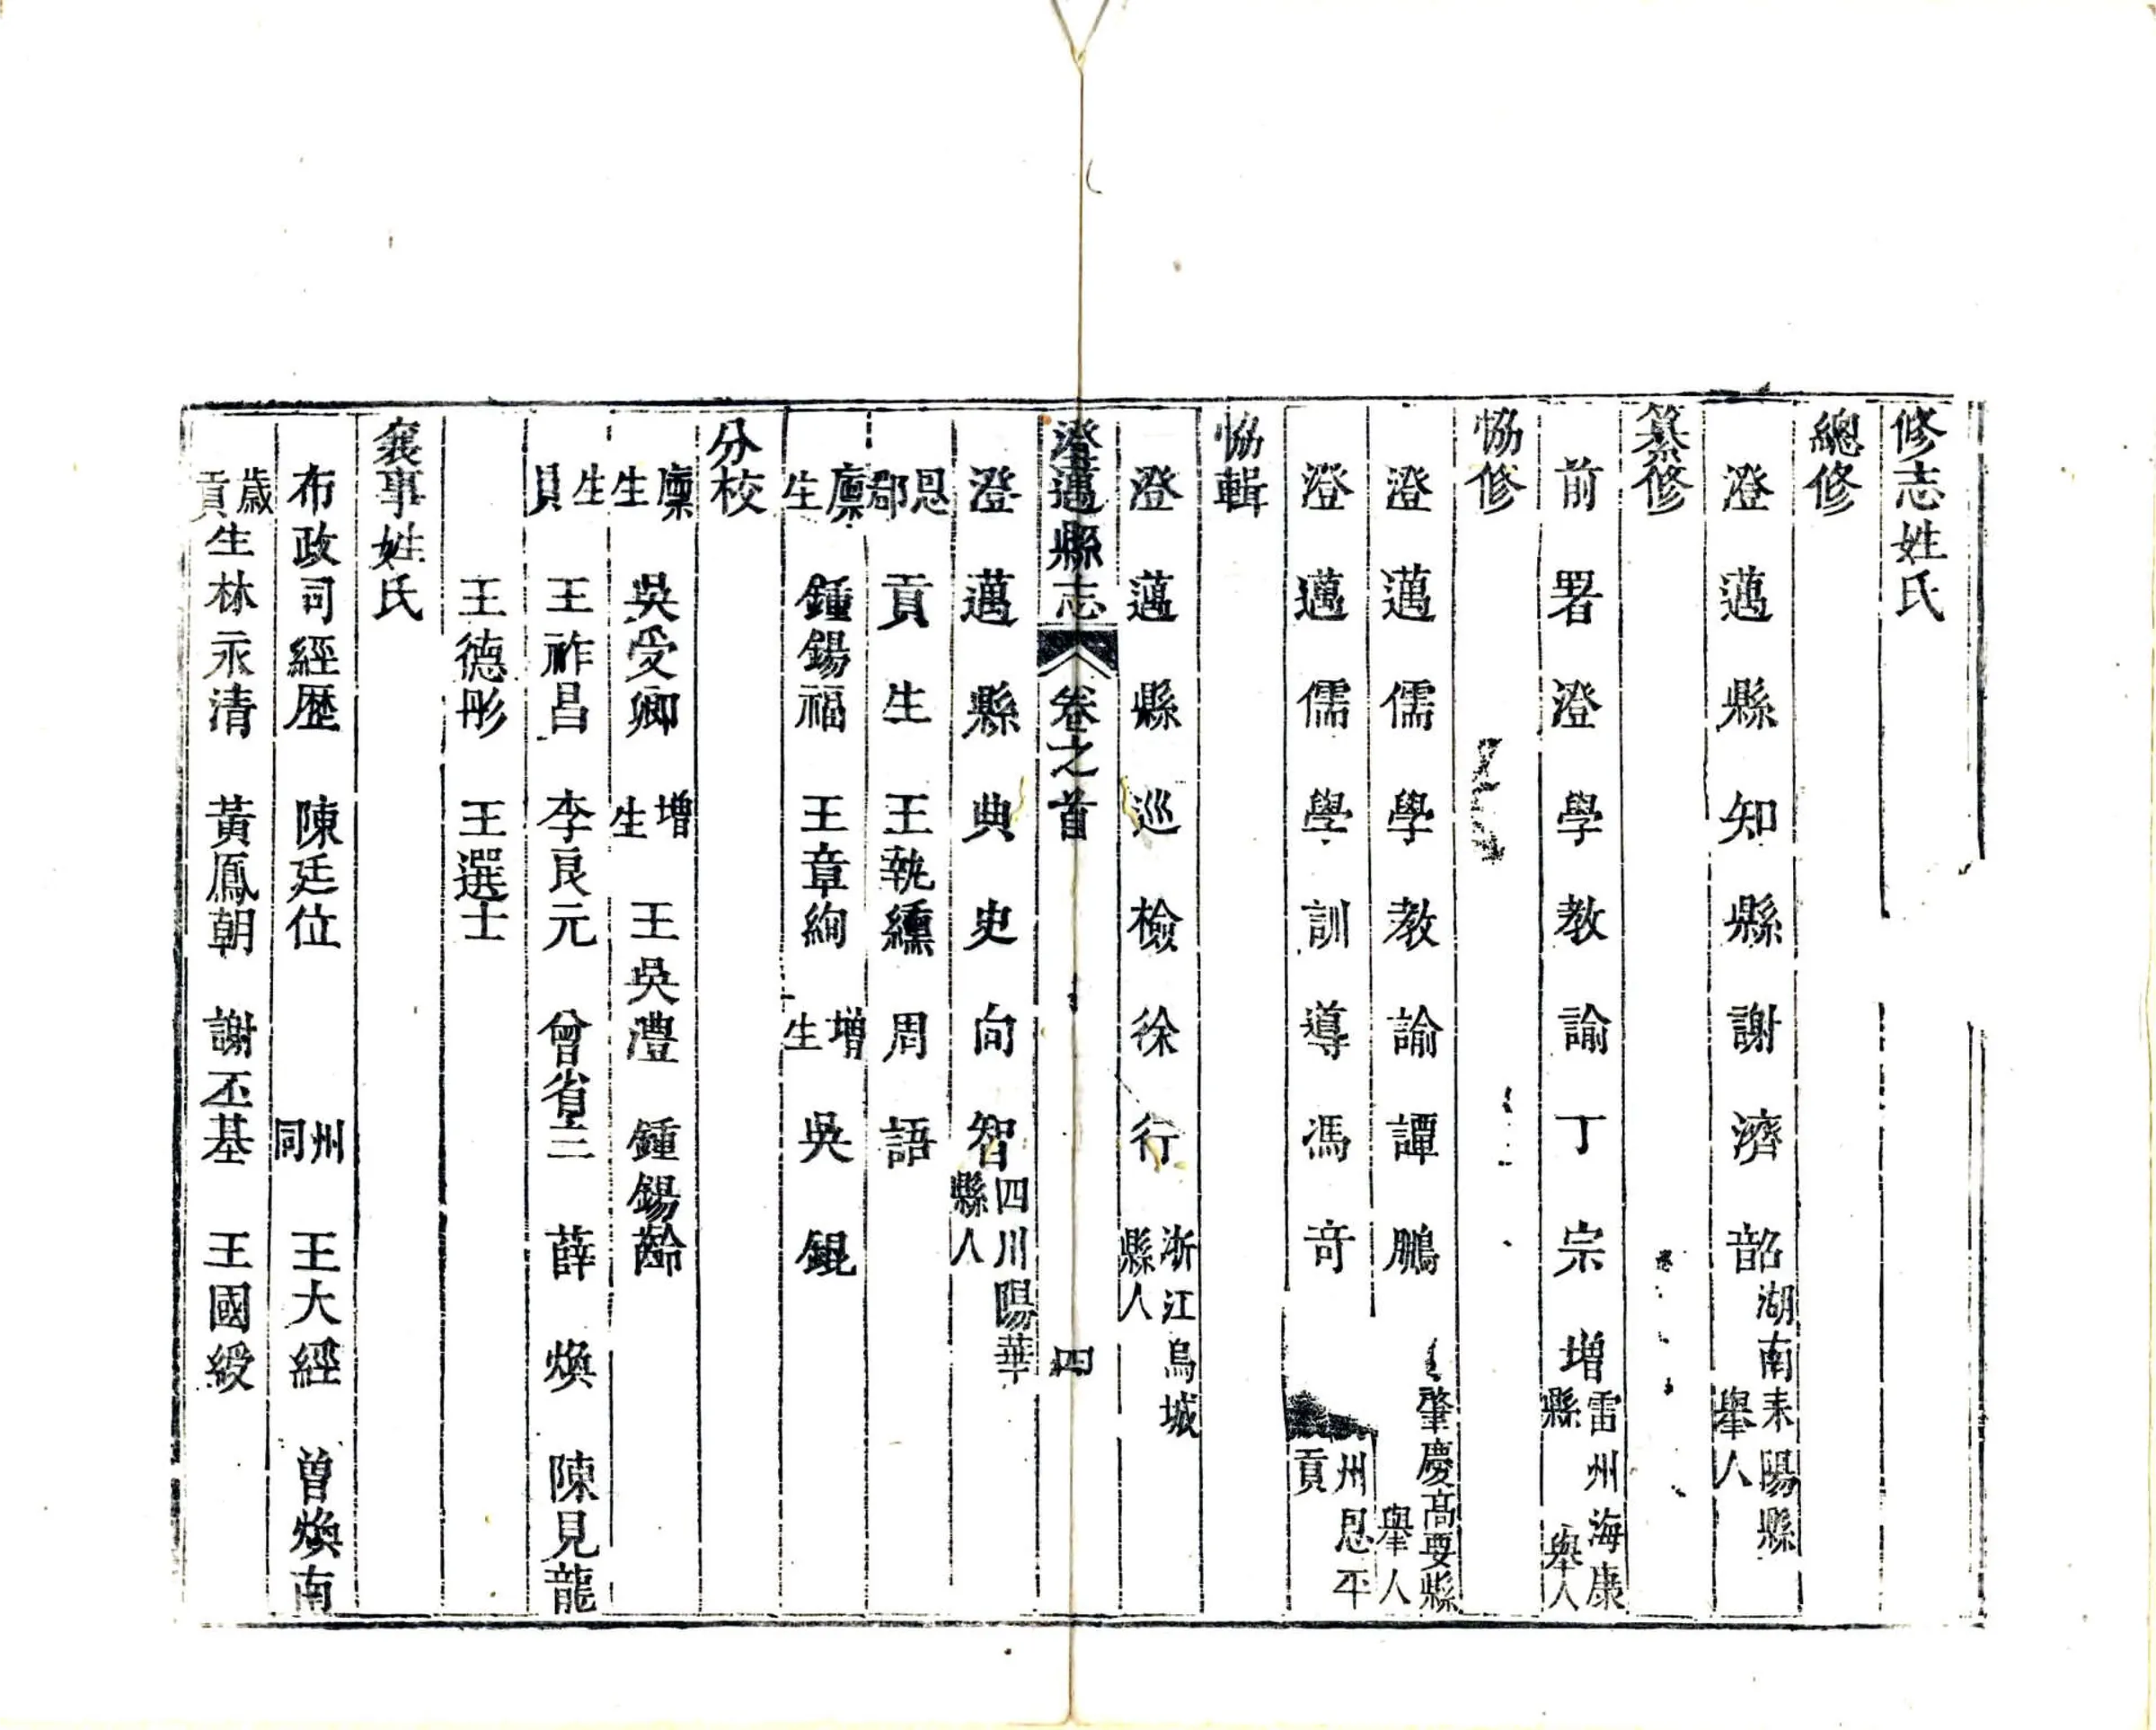 修志姓氏
總修
澄邁縣知縣謝濟韶湖南耒陽縣舉人
纂修
前署澄學教諭丁宗增雷州海康縣舉人
恊修
澄邁儒學教諭譚鵬肇慶高要縣舉人
澄邁儒學訓導馮奇州恩平貢
恊輯
澄邁縣巡檢徐行浙江烏城縣人
澄邁縣志 卷之首 四
澄邁縣典史向智四川陽華縣人
恩郡貢生 王執纁 周語
廩生 鍾錫福 王章絢 增生 吳錕
分校
廩生 吳受卿 增生 王吳澧 鍾錫齡
生員 王祚昌 李良元 曾省三 薛煥 陳見龍
王德彤 王選士
襄事姓氏
布政司經歷 陳廷位 州同 王大經 曾煥南
歲貢生林永清 黃鳳朝 謝丕基 王國綬